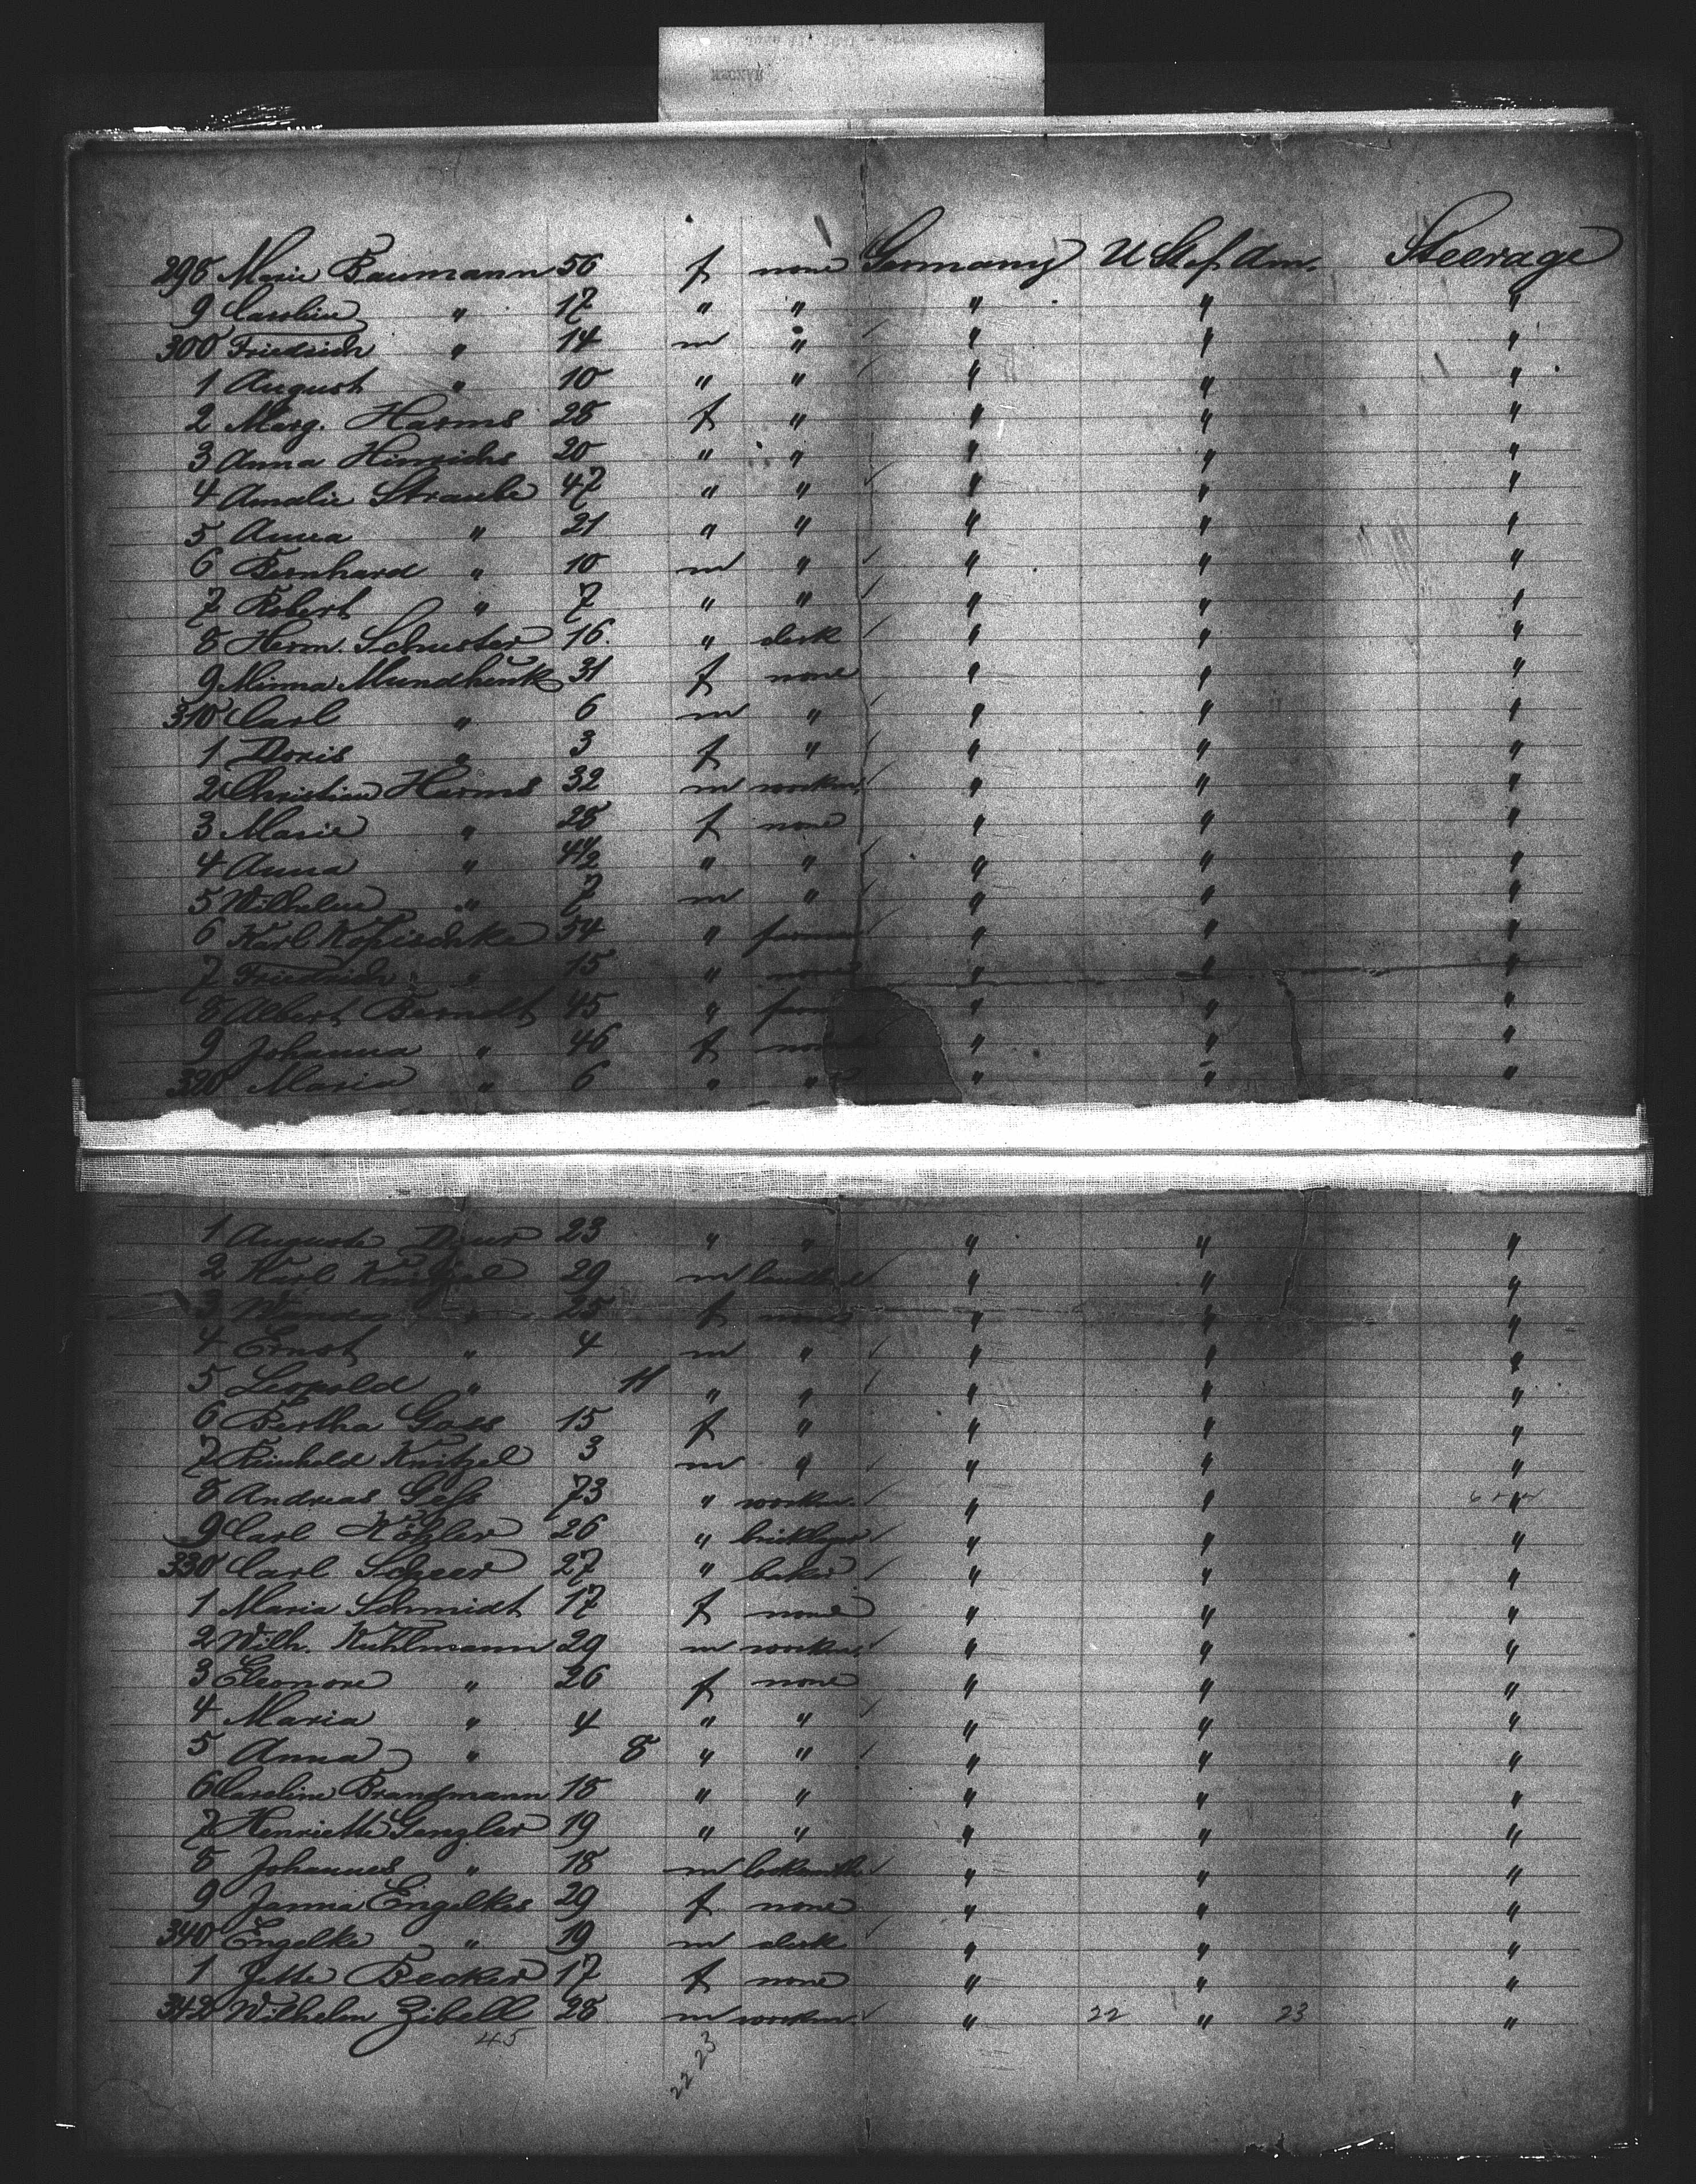 298 Marie Baumann 56 f none Germany U St of Am. Steerage
9 Caroline " 17 " " " " "
300 Friedrich " 14 m " " " "
1 August " 10 " " " " "
2 Marg. Harms 28 f " " " "
3 Anna Hinrichs 20 " " " " "
4 Amalie Straube 47 " " " " "
5 Anna " 21 " " " " "
6 Bernhard " 10 m " " " "
7 Robert " 7 " " " " "
8 Herm. Schuster 16. " clerk " " "
9 Minna Mundhenk 31 f none " " "
310 Carl " 6 m " " " "
1 Doris " 3 f " " " "
2 Christian Harms 32 m workm. " " "
3 Marie " 28 f none " " "
4 Anna " 4 1/2 " " " " "
5 Wilhelm " 7 m " " " "
6 Karl Kopischke 54 " farmer " " "
7 Friedrich " 15 " none " " "
8 Albert Berndt 45 " " " "
9 Johanna " 46 f " " "
320 Maria " 6 " " " " "
1 Auguste 23 " " " " "
2 Karl Knitzel 29 m " " "
3 " 25 f none " " "
4 Ernst " 4 m " " " "
5 Leopold " 11 " " " " "
6 Bertha Gass 15 f " " " "
7 Reinhold Knitzel 3 m " " " "
8 Andreas Gess 73 " workm. " " "
9 Carl Köhler 26 " bricklayer " " "
330 Carl Scheer 27 " baker " " "
1 Maria Schmidt 17 f none " " "
2 Wilh. Kuhlmann 29 m workm. " " "
3 Eleonore " 26 f none " " "
4 Maria " 4 " " " " "
5 Anna " 8 " " " " "
6 Caroline Brandmann 18 " " " " "
7 Henriette Gengler 19 " " " " "
8 Johannes " 18 m locksmith " " "
9 Janna Engelkes 29 f none " " "
340 Engelke " 19 m clerk " " "
1 Jette Becker 17 f none " " "
342 Wilhelm Zibell 28 m workm. " 22 " 23 "
45 22 23